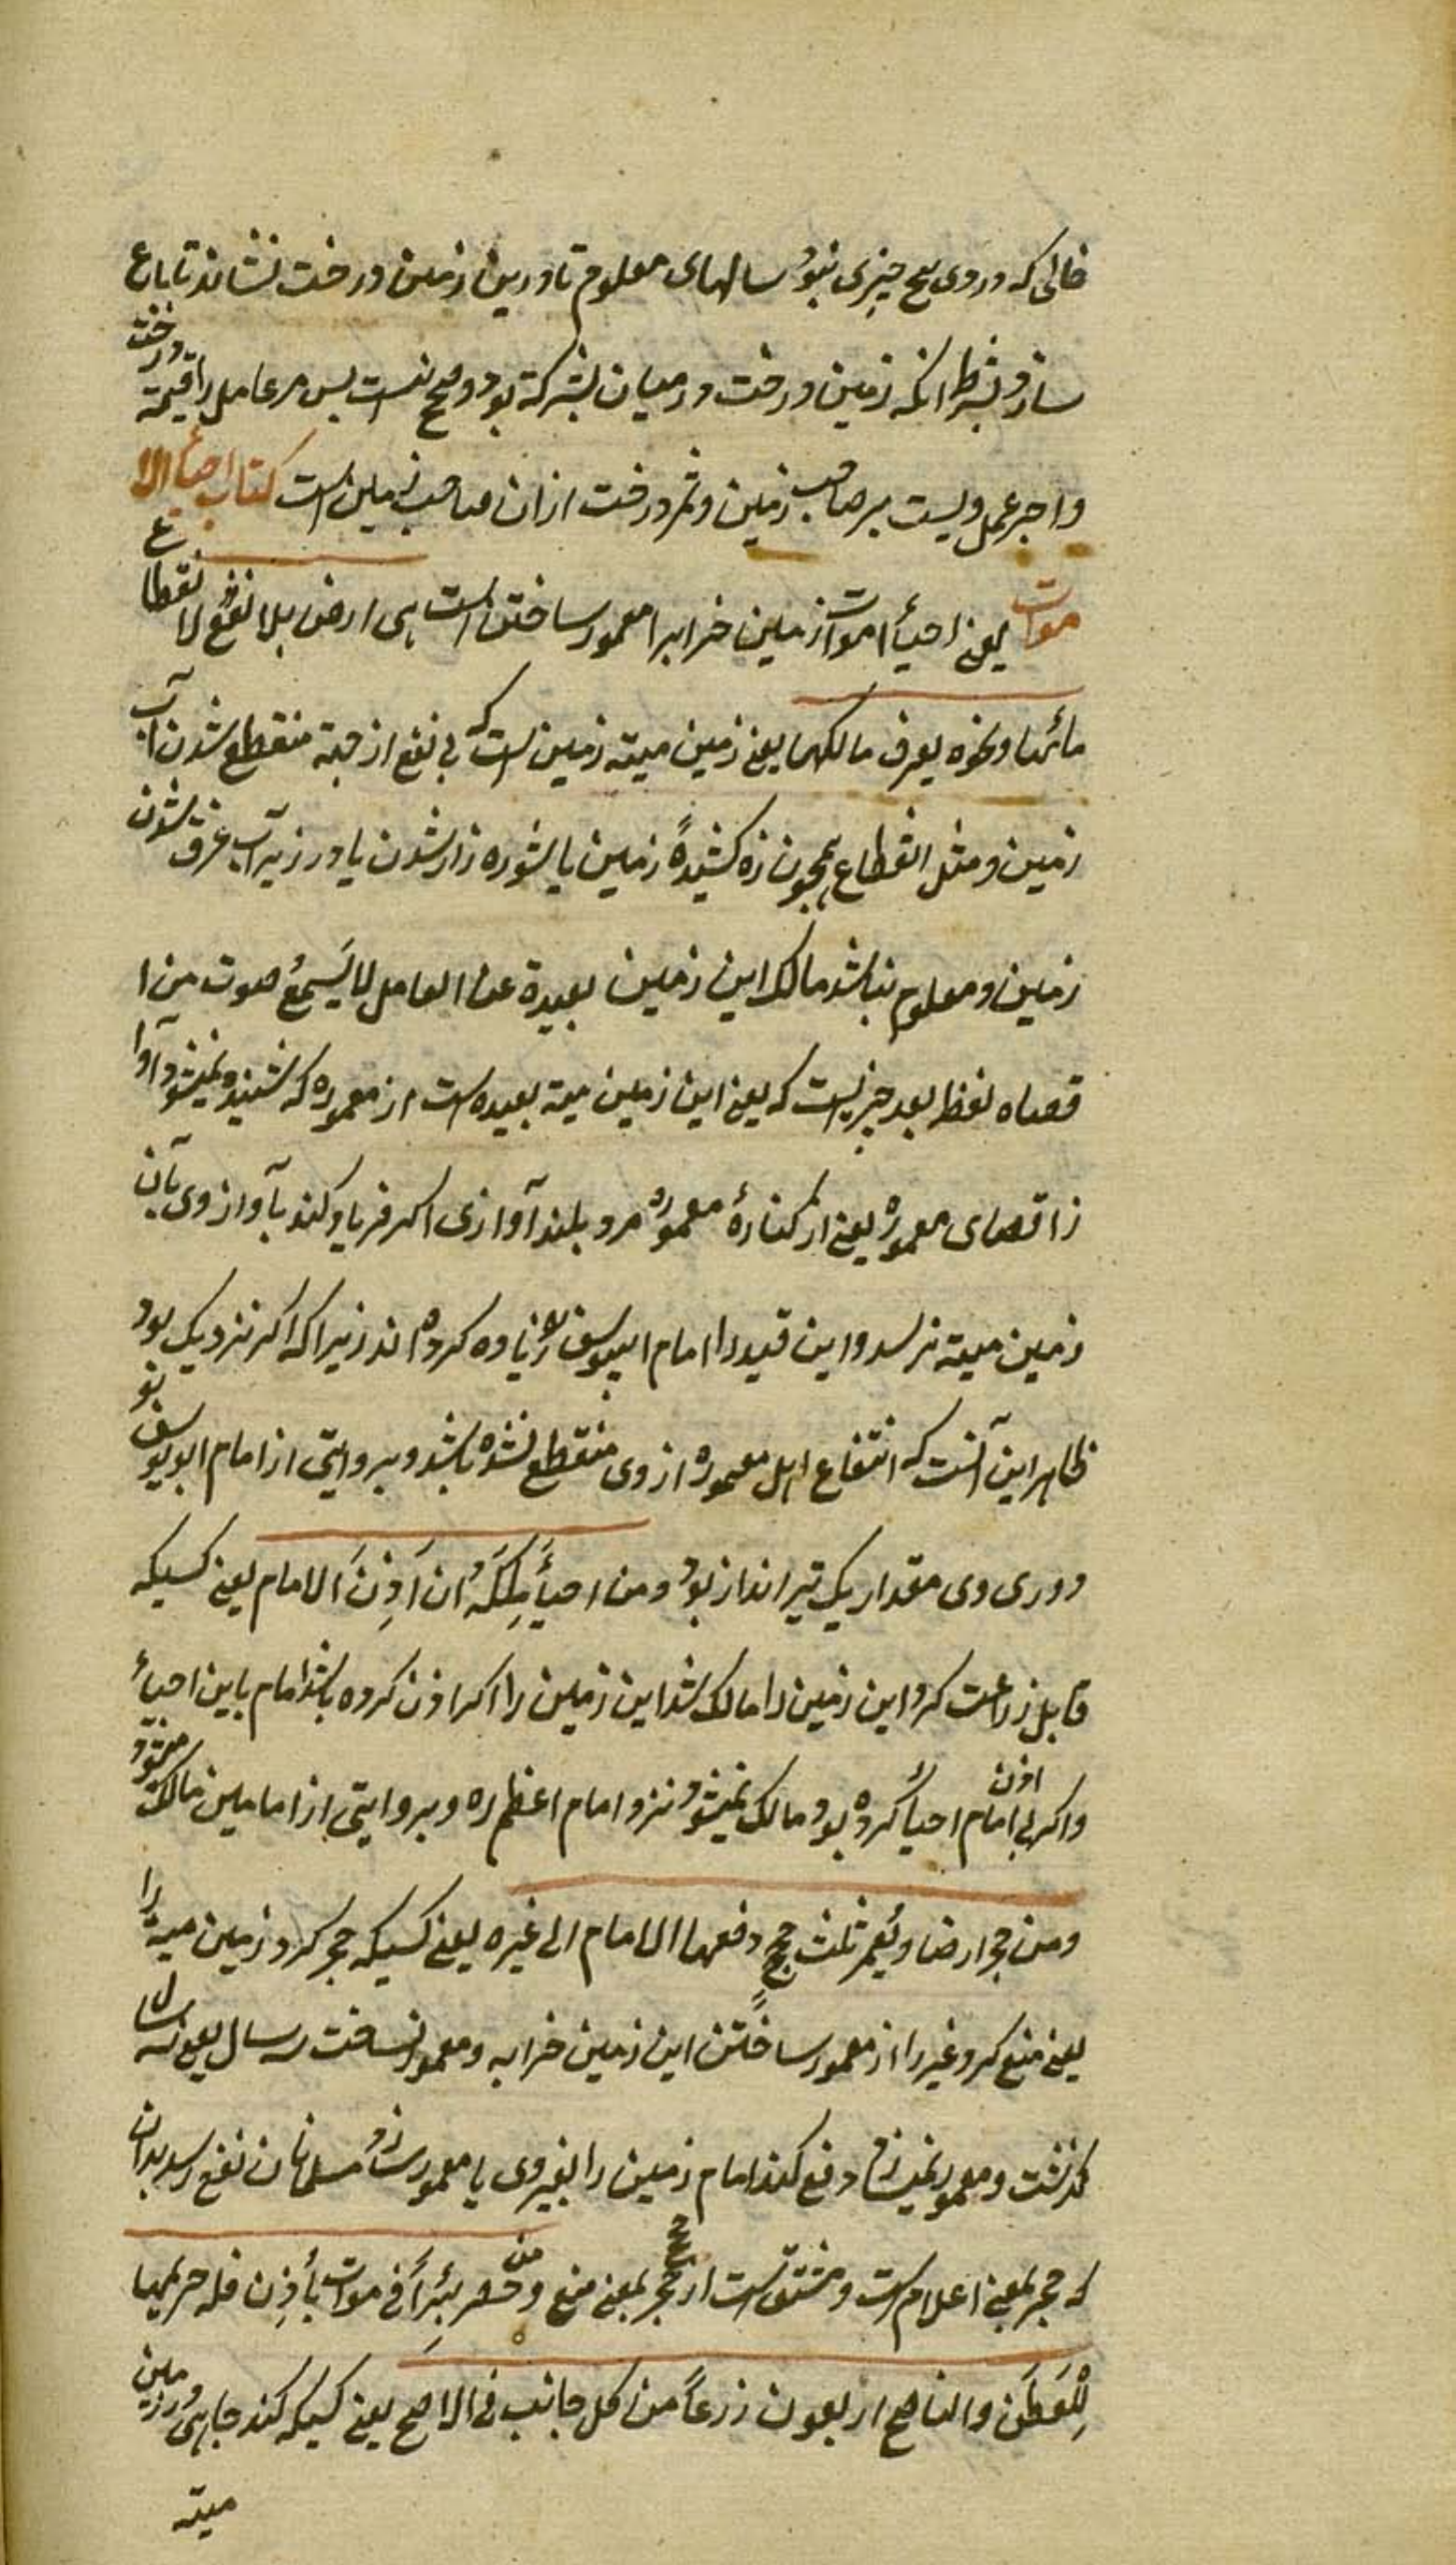 خالی که دروی هیچ چیزی نبود سالهای معلوم تا درین زمین درخت نشاند تا باغ
سازد بشرط انکه زمین و درخت درمیان بشرکة بود صحیح نیست پس مر عامل را قیمة درخت
و اجر عمل ویست بر صاحب زمین و ثمر درخت ازان صاحب زمین است کتاب احیأ الا
موات یعنی احیأ اموات زمین خرابرا معمور ساختن است هی ارض بلا نفع لانقطاع
مائها و نحوه یعرف مالکها یعنی زمین میته زمین است که بی نفع از جهة منقطع شدن آب
زمین و مثل انقطاع همچون زه کشیدهٔ زمین یا شوره زار شدن یا در زیر آب غرق شدن
زمین و معلوم نباشد مالک این زمین بعیدة عن العامل لا یَسمعُ صوت من ا
قصاه لفظ بعد چیزیست که یعنی این زمین میته بعیده است از معموره که شنیده نمیشود آوا
ز اقصای معموره یعنی از کنارهٔ معموره مرد بلند آوازی اکر فریاد کند بآواز وی بآن
زمین میته نرسد و این قید را امام ابیوسف ره زیاده کرده اند زیرا که اکر نزدیک بود
ظاهر این آنست که انتفاع اهل معموره از وی منقطع نشده باشد و بروایتی از امام ابو یوسف
دوری وی مقدار یک تیر انداز بود و من احیأ مَلِکَهُ ان اَذِنَ الامام یعنی کسیکه
قابل زراعت کرد این زمین را مالک شد این زمین را اکر اذن کرده باشد امام باین احیأ
و اکر بی اذن امام احیأ کرده بود مالک نمیشود نزد امام اعظم ره و بروایتی از امامین مالک میشود
و من حجر ارضا و یُعمر ثلث حججٍ دفعها الامام الی غیره یعنی کسیکه حجر کرد زمین میته را
یعنی منع کرد غیر را از معمور ساختن این زمین خرابه و معمور نساخت سه سال یعنی سه سال
کذشت و معمور نمیسازد دفع کند امام زمین را بغیر وی یا معمور سازد مسلمانان نفع رسد بدان
که حجر بمعنی اعلام است و مشتق است از حجر بمعنی منع و من حفر بئراً فی موات بأذِن فله حریمها
لِلْعَطَن والناضح اربعون ذرعاً من کل جانب فی الاصح یعنی کسیکه کند چاهی در زمین
میته